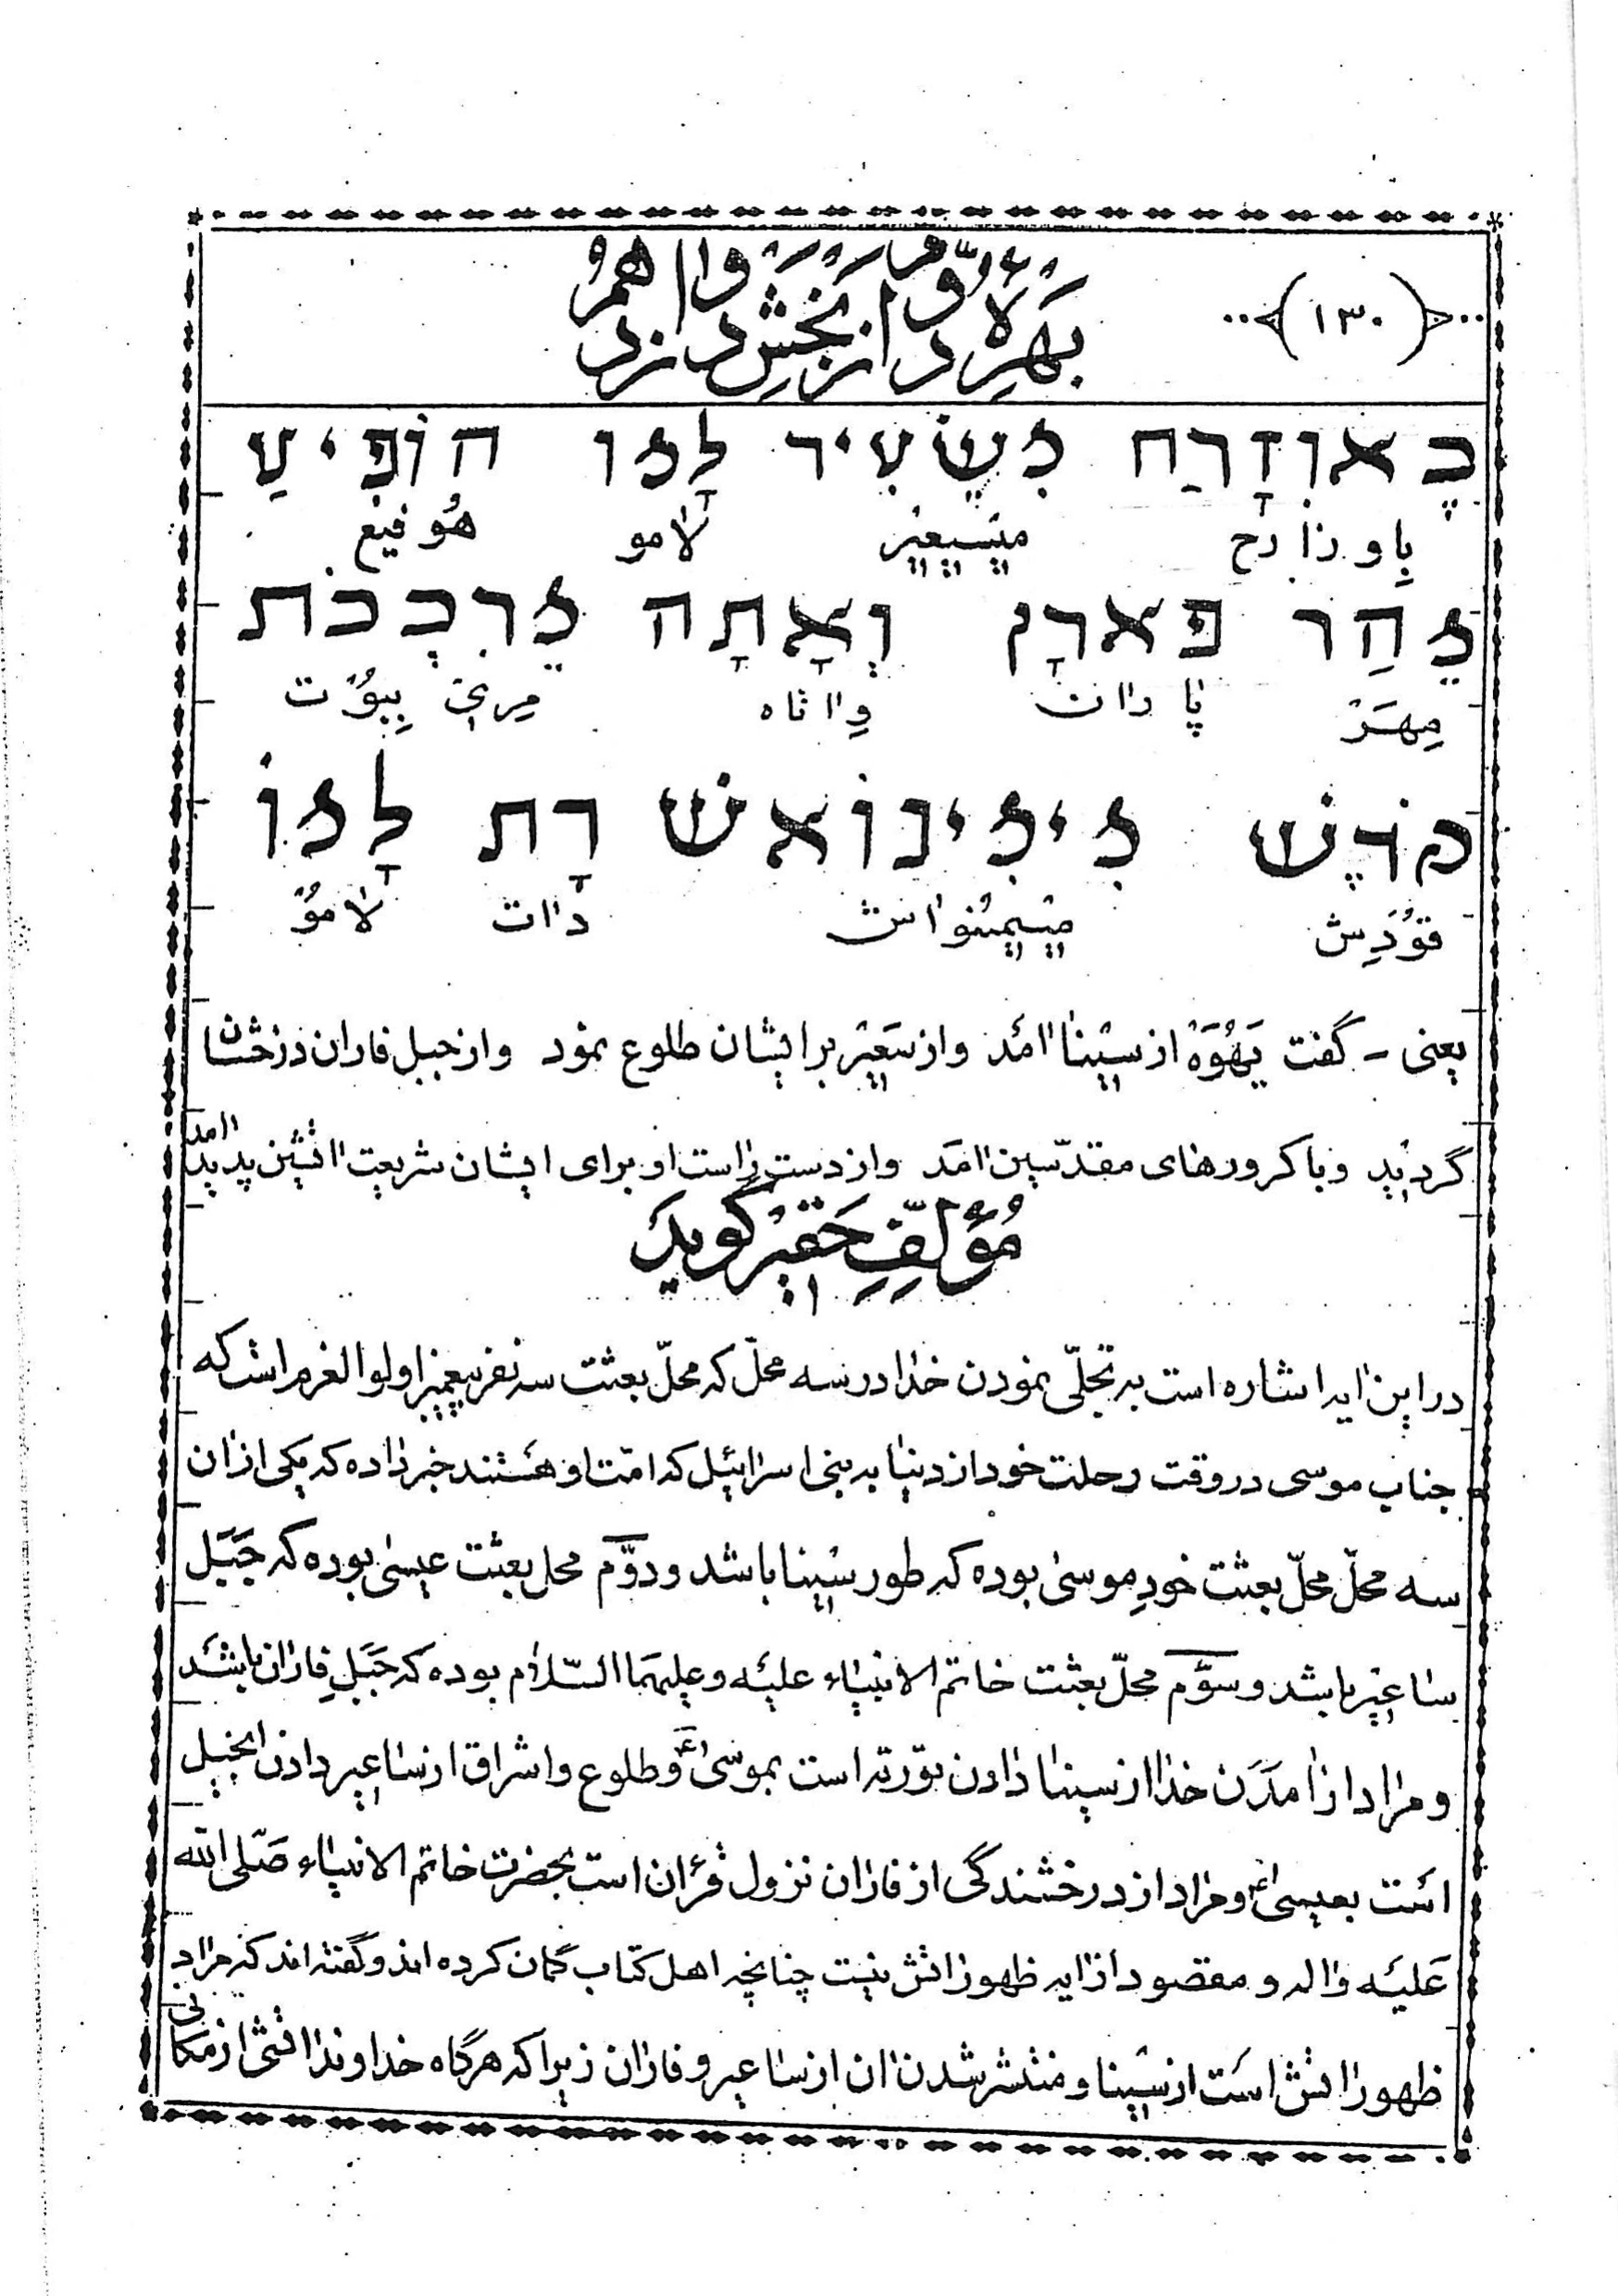 ﴿۱۳۰﴾
بهرۀ دوّم از بخش دوازدهم
בָּאוְזָרַח מִשֵּׂעִיר לָמוֹ הוֹפִיעַ
باوزارح میسیعیر لامو هوفیع
מֵהַר פָּארָן וְאָתָה מֵרִבְבֹת
مِهَر پاران وااتاه مِربِبوُت
קֹדֶשׁ מִימִינוֹאשׁ דָּת לָמוֹ
قوُدِش میمینواش داات لاموُ
یعنی - گفت یَهُوَه از سینا امد و از سَعیر برایشان طلوع نمود و از جبل فاران درخشان
گردید و با کرورهای مقدّسین امَد و از دست راست او برای ایشان شریعت اتشین پدید امد
مُؤلِّفِ حَقیر گوید
در این ایه اشاره است به تجلّی نمودن خدا در سه محلّ که محلّ بعثت سه نفر پیغمبر اولوالعزم است که
جناب موسی در وقت رحلت خود از دنیا به بنی اسرائیل که امّت او هستند خبر داده که یکی از ان
سه محلّ محلّ بعثت خودِ موسی بوده که طور سینا باشد و دوّم محل بعثت عیسی بوده که جَبَل
ساعیر باشد و سوّم محلّ بعثت خاتم الانبیاء علیه و علیهما السّلام بوده که جَبَلِ فاران باشد
و مراد از امدَن خدا از سینا دادن تورته است بموسی ع و طلوع و اشراق از ساعیر دادن انجیل
است بعیسی ع و مراد از درخشندگی از فاران نزول قرءان است بحضرت خاتم الانبیاء صَلّی الله
عَلیه واله و مقصود از ایه ظهور اتش نیست چنانچه اهل کتاب گمان کرده اند و گفته اند که مراد
ظهور اتش است از سینا و منتشر شدن ان از ساعیر و فاران زیرا که هرگاه خداوند اتشی از مکانی